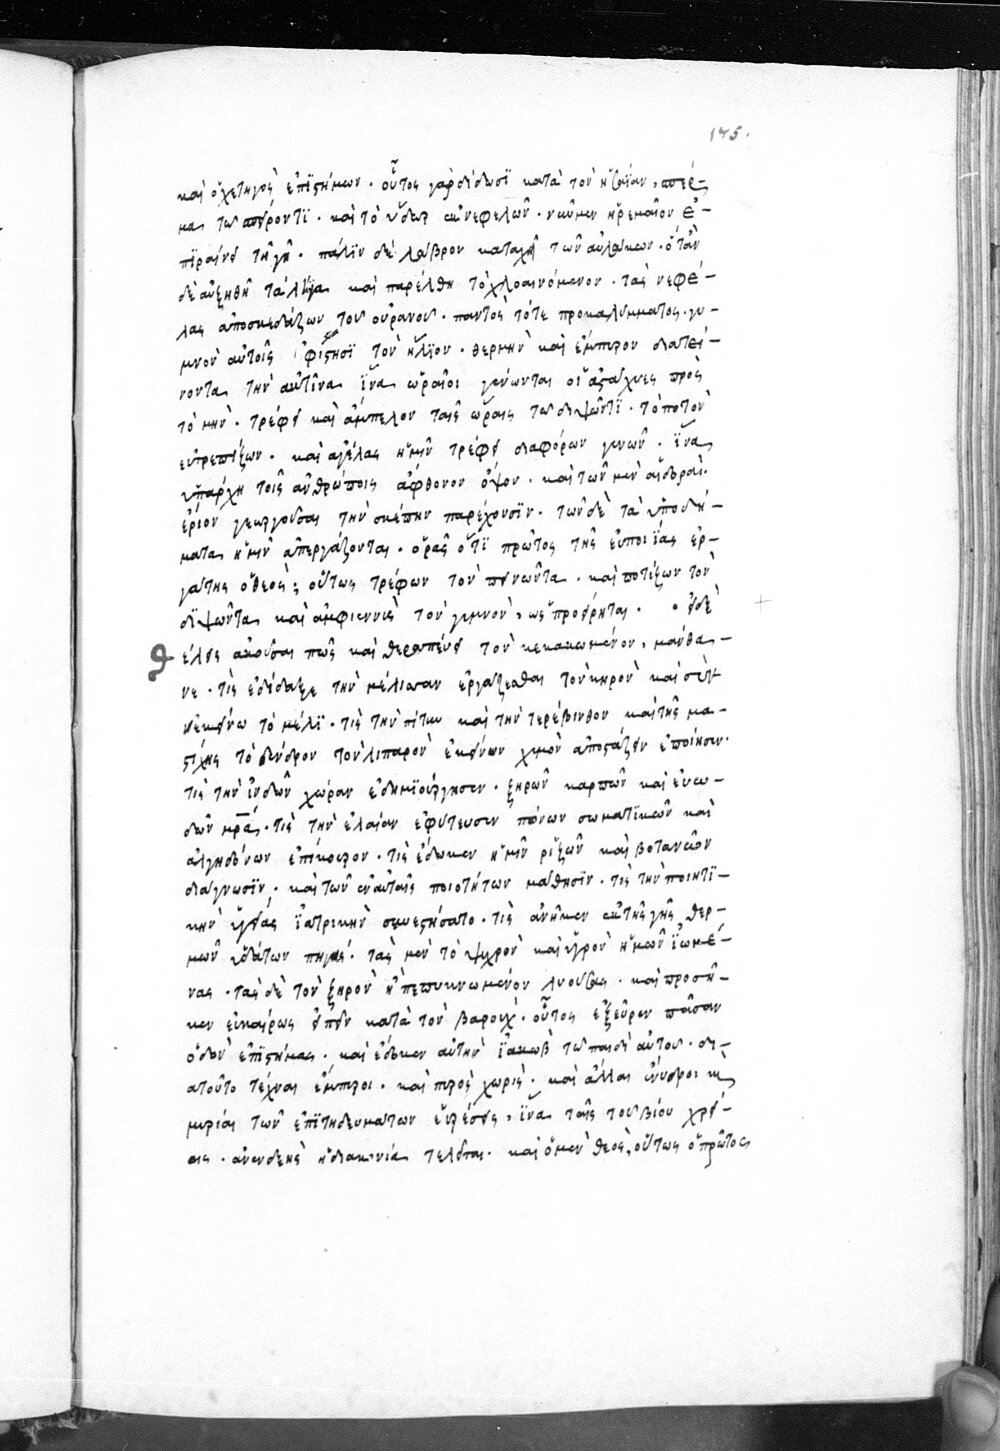 175.
καὶ ὀχετηγὸς ἐπιστήμων · οὗτος γὰρ δίδωσι κατὰ τὸν ἡσαΐαν, σπέρ-
μα τῶ σπείροντι · καὶ τὸ ὕδωρ ἐκ νεφελῶν · νῦν μὲν ἠρεμαῖον ἐ-
πιραίνει τῆ γῆ · πάλιν δὲ λάβρον καταχεῖ τῶν αὐλάκων · ὅταν
δὲ αὐξηθῆ τὰ λήϊα καὶ παρέλθη τὸ χλοαινόμενον · τὰς νεφέ-
λας ἀποσκεδάζων τοῦ οὐρανοῦ · παντὸς τότε προκαλύμματος · γυ-
μνὸν αὐτοῖς ἐφίστησι τὸν ἥλιον · θερμὴν καὶ ἔμπυρον διατεί-
νοντα τὴν ἀκτῖνα ἵνα ὡραῖοι γένωνται οἱ ἀστάχυες πρὸς
τὸ μὴν · τρέφει καὶ ἄμπελον ταῖς ὥραις τῶ διψῶντι · τὸ ποτὸν
εὐτρεπίζων · καὶ ἀγέλας ἡμῖν τρέφει διαφόρων γενῶν · ἵνα
ὑπάρχη τοῖς ἀνθρώποις ἄφθονον ὄψον · καὶ τῶν μὲν αἱ δοραὶ
ἔριον γεωργοῦσαι τὴν σκέπην παρέχουσιν · τῶν δὲ τὰ ὑποδή-
ματα ἡμῖν ἀπεργάζονται · ὁρᾶς ὅτι πρῶτος τῆς εὐποιίας ἐρ-
γάτης ὁ θεὸς; οὕτως τρέφων τὸν πεινῶντα · καὶ ποτίζων τὸν
διψῶντα καὶ ἀμφιεννὺς τὸν γυμνὸν, ὡς προείρηται · εἰ δὲ
θέλεις ἀκοῦσαι πῶς καὶ θεραπεύει τὸν κεκακωμένον, μάνθα-
νε · τίς ἐδίδαξε τὴν μέλισσαν ἐργάζεσθαι τὸν κηρὸν καὶ σὺν
ἐκείνω τὸ μέλι · τίς τὴν πίτυν καὶ τὴν τερέβινθον καὶ τῆς μα-
στίχης τὸ δένδρον τὸν λιπαρὸν ἐκεῖνον χυμὸν ἀποστάζειν ἐποίησεν·
τίς τὴν ἰνδῶν χώραν ἐδημιούργησεν · ξηρῶν καρπῶν καὶ εὐω-
δῶν μρα · τίς τὴν ἐλαίαν ἐφύτευσεν πόνων σωματικῶν καὶ
ἀλγηδόνων ἐπίκουρον · τίς ἔδωκεν ἡμῖν ῥιζῶν καὶ βοτανῶν
διάγνωσιν · καὶ τῶν ἐν αὐταῖς ποιοτήτων μάθησιν · τίς τὴν ποιητι-
κὴν ὑγείας ἰατρικὴν συνεστήσατο · τίς ἀνῆκεν ἐκ τῆς γῆς θερ-
μῶν ὑδάτων πηγάς · τὰς μὲν τὸ ψυχρὸν καὶ ὑγρὸν ἡμῶν ἰωμέ-
νας · τὰς δὲ τὸν ξηρὸν ἢ πεπυκνωμένον λυούσας · καὶ προσῆ-
κεν εὐκαίρως εἰπεῖν κατὰ τὸν βαροὺχ · οὗτος ἐξεῦρεν πᾶσαν
ὁδὸν ἐπιστήμης · καὶ ἔδωκεν αὐτὴν ἰακὼβ τῶ παιδὶ αὐτοῦ · δι-
ὰ τοῦτο τέχναι ἔμπυροι · καὶ πυρὸς χωρὶς · καὶ ἄλλαι ἔνυδροι κ(αὶ)
μυρίαι τῶν ἐπιτηδευμάτων εὑρέσεις, ἵνα ταῖς τοῦ βίου χρεί-
αις · ἀνενδεὴς ἡ διακονία τελῆται · καὶ ὁ μὲν θεὸς, οὕτως ὁ πρῶτος